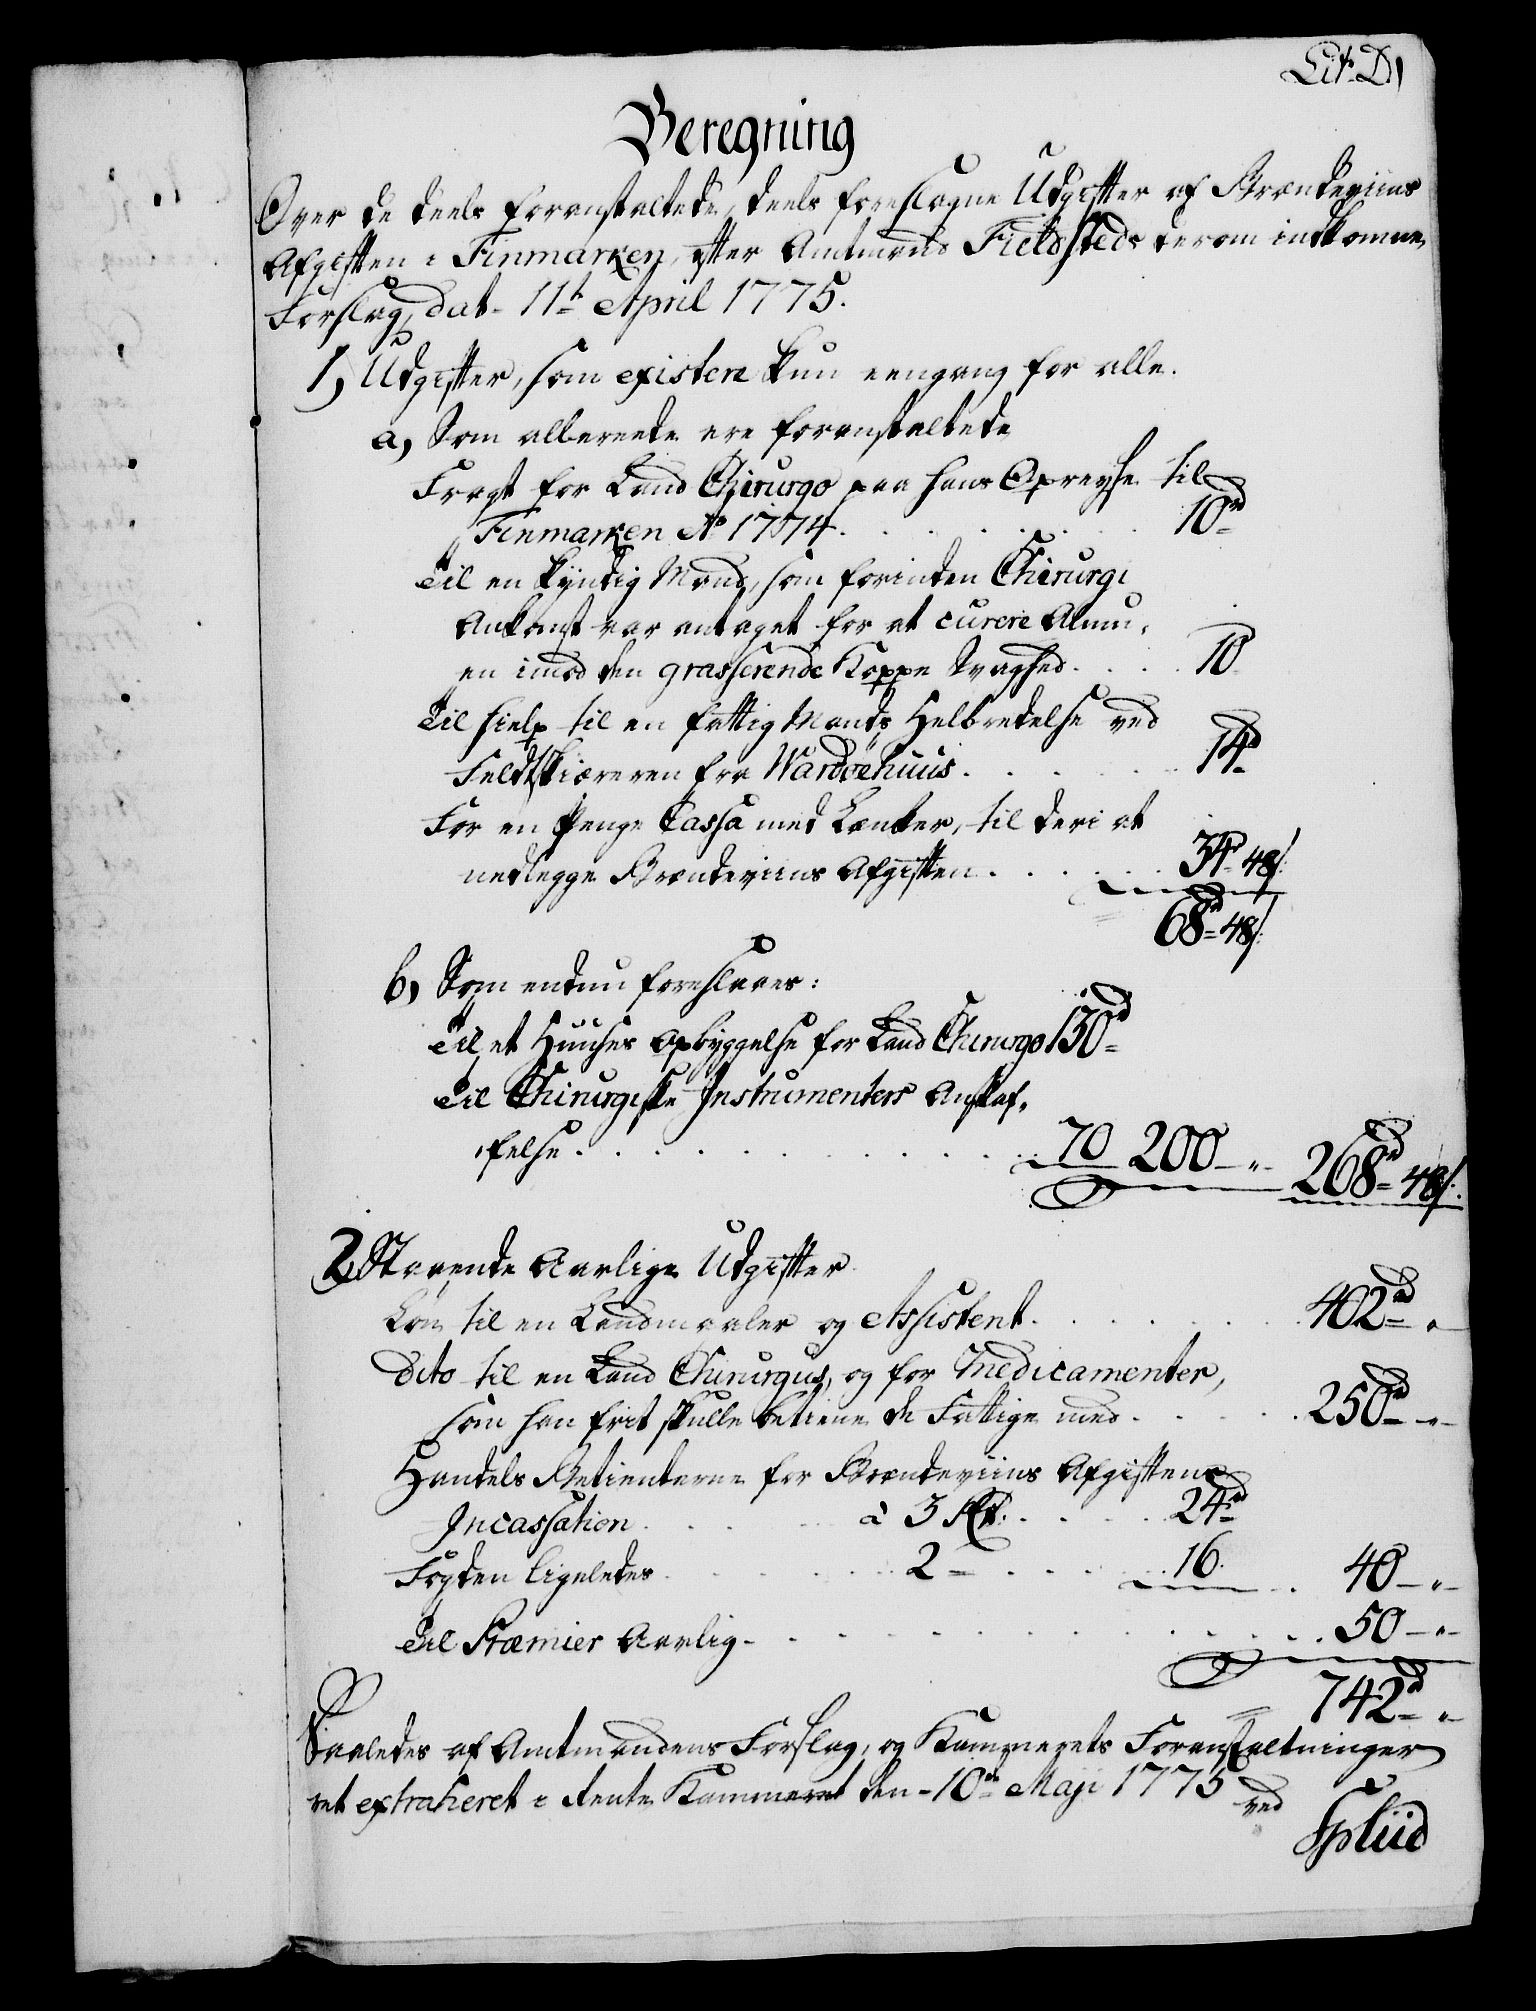 Lit. D,
Beregning
Over de deels foranstaltede, deels foreslagne Udgifter af Brændeviins
Afgiften i Finmarken, efter Amtmand Fieldsteds derom indkomne
Forslag, dat. 11t April 1775.
1, Udgifter, som existere kun eengang for alle.
a, Som allereede ere foranstaltede
Fragt for Land Chirurgo paa hans Opreyse til
Finmarken Ao 1774 . . . . . . 10rd
Til en kyndig Mand, som forinden Chirurgi
Ankomst var antaget for at curere Almu,
en imod den grasserende Koppe Svaghed . . . . 10
Til Hielp til en fattig Mands Helbredelse ved
Feldtskiæreren fra Wardöehuus . . . . . 14rd
For en Penge Cassa med Lænker, til deri at
nedlegge Brændeviins Afgiften . . . . . 34rd 48/:
68rd 48/:
b, Som endnu foreslaaes:
Til et Huuses Opbyggelse for Land Chirurgo 130rd
Til Chirurgiske Instrumenters Anskaf,
,felse . . . . . . . . . . 70 200 — " — 268rd 48/:
2, Staaende Aarlige Udgifter
Løn til en Landmaaler og Assistent . . . . . . . 402rd "
Dito til en Land Chirurgus, og for Medicamenter,
som han frit skulle betiene de Fattige med . . . . . 250rd — " —
Handels Betienterne for Brændeviins Afgiftens
Incassation . . . . . à 3 Rd: . . . . 24rd
Fogden ligeledes . . . . . . 2 — . . . . 16. . 40 — " —
Til Præmier Aarlig . . . . . . . . . . 50 — " —
742rd "
Saaledes af Amtmandens Forslag, og Kammerets Foranstaltninger
ret extraheret i Rente Kammeret den 10de Maji 1775 ved
Spliid